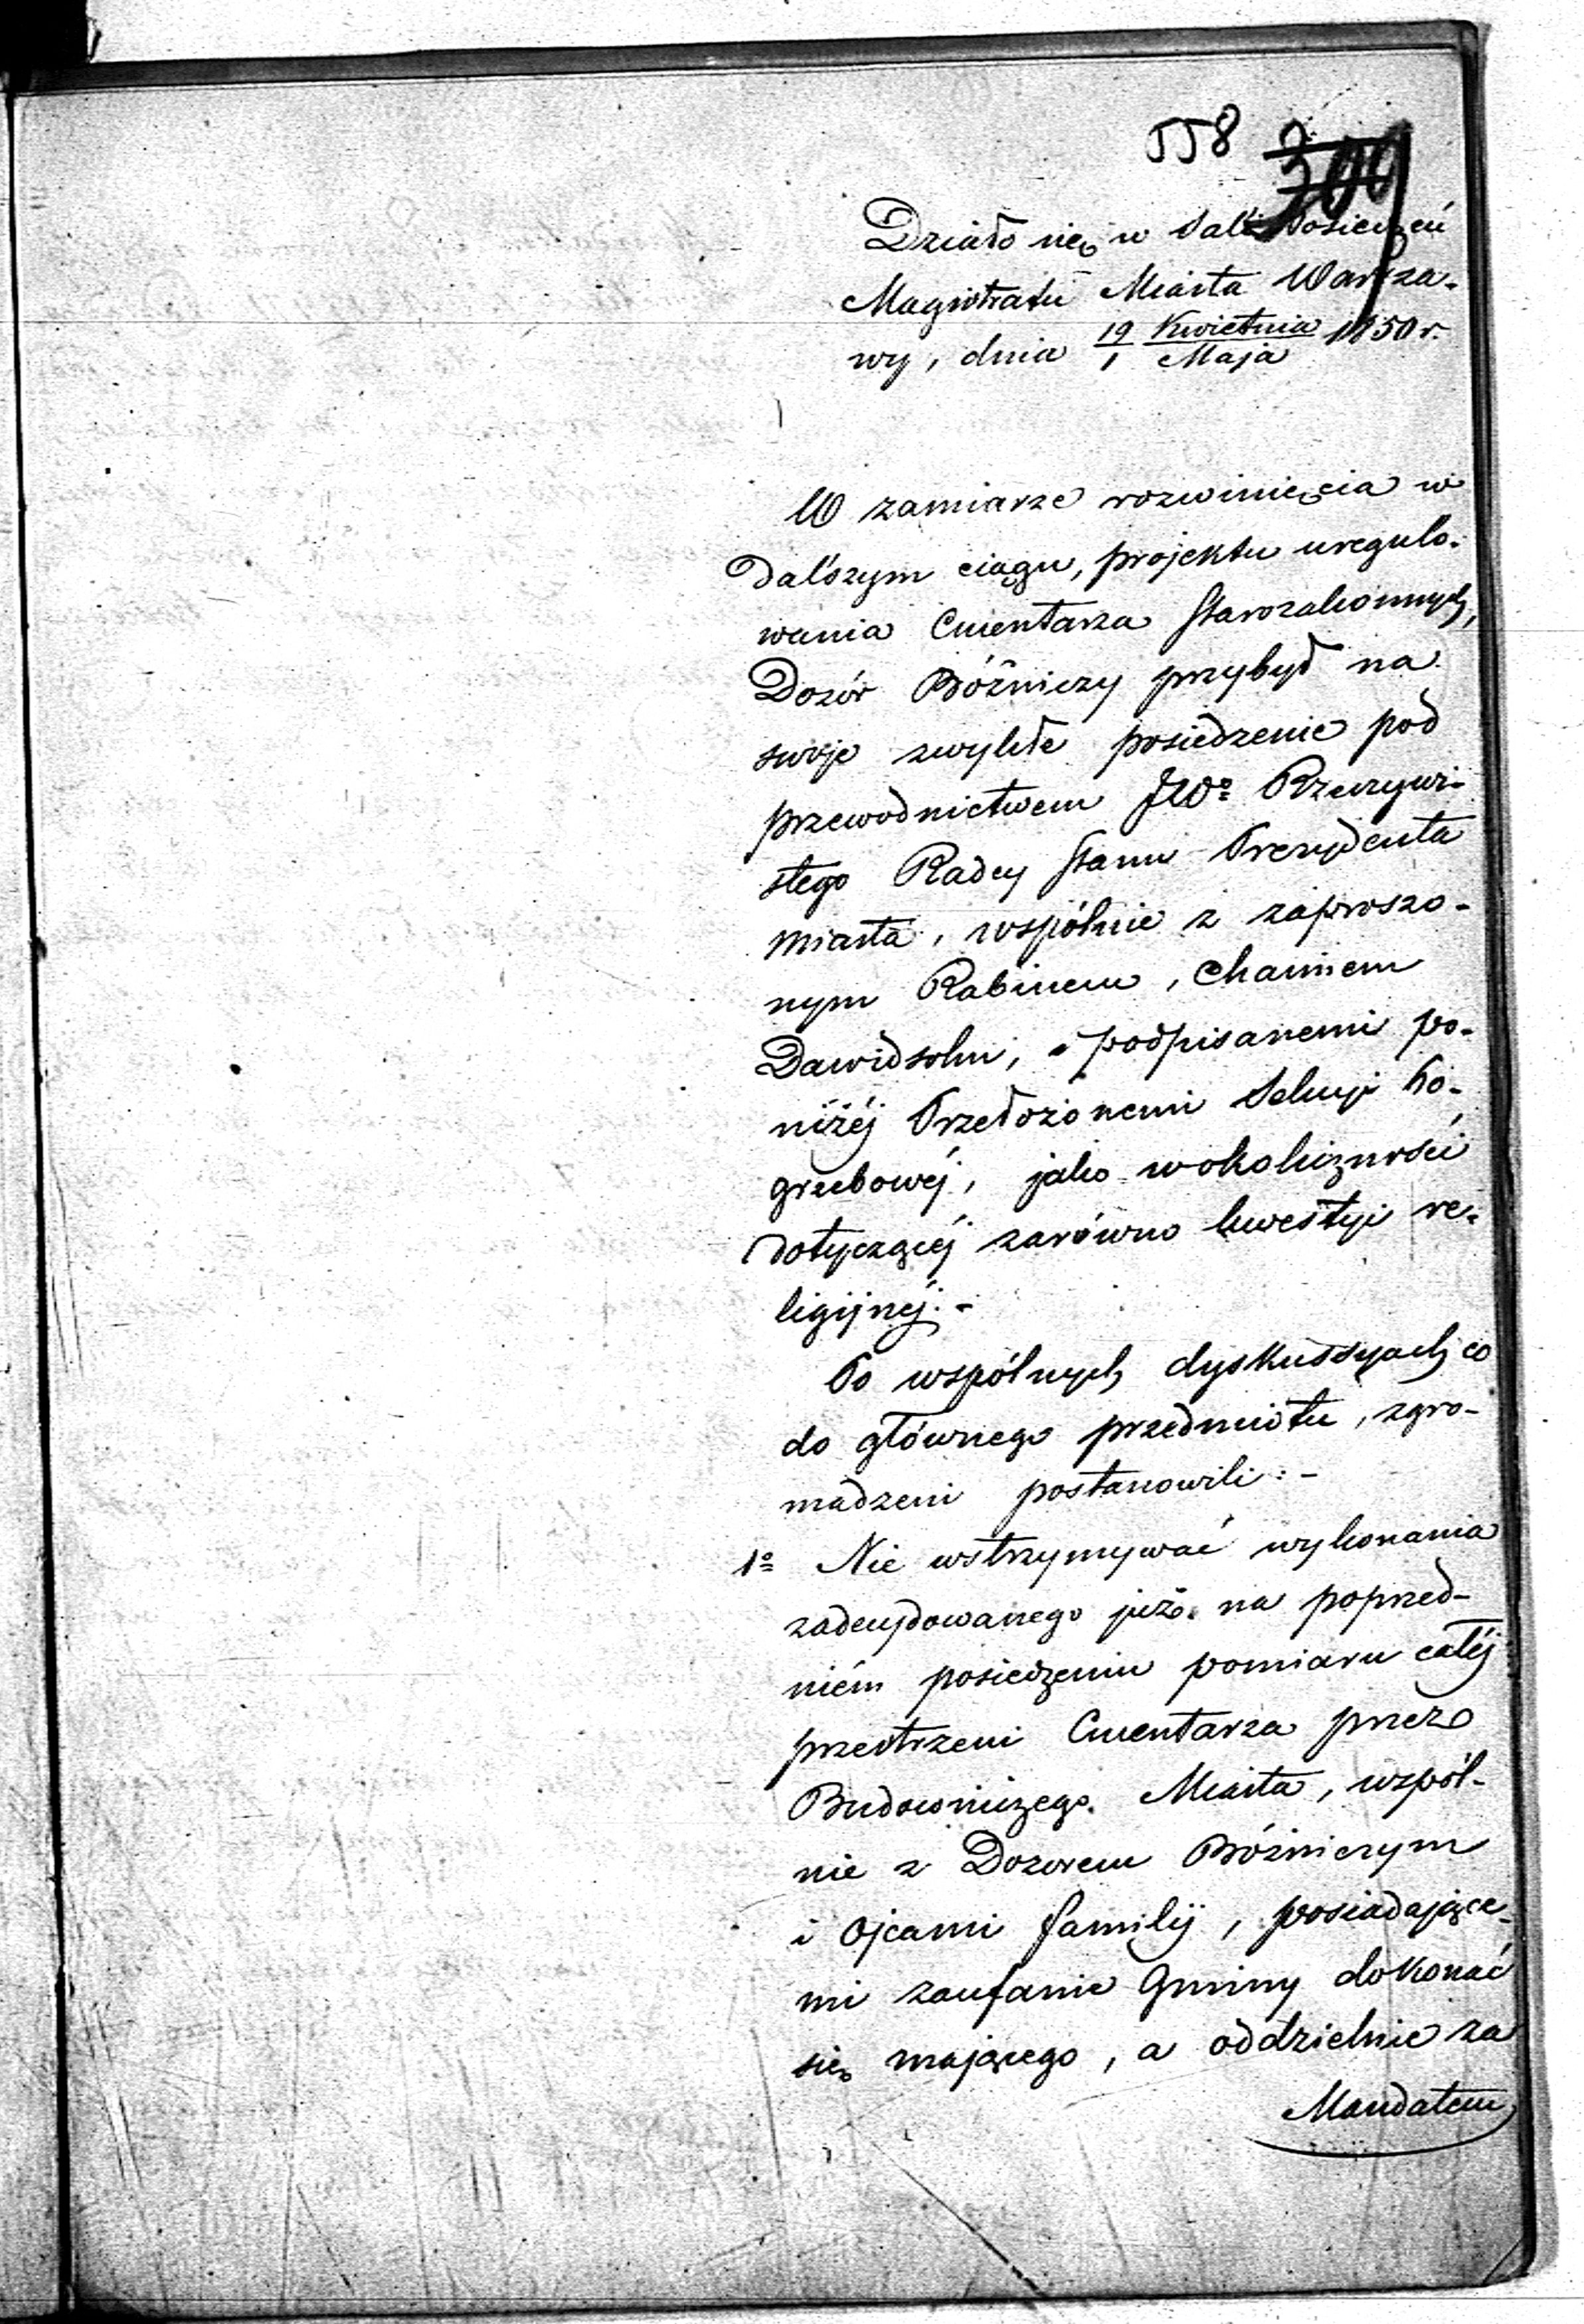 558 309
Działo się w Sali Posiedzeń
Magistratu Miasta Warsza-
wy, dnia 19/1 Kwietnia/Maja 1850 r.
W zamiarze rozwinięcia w
dalszym ciągu, projektu uregulo-
wania Cmentarza Starozakonnych,
Dozór Bóźniczy przybył na
swoje zwykłe posiedzenie pod
przewodnictwem JWo Rzeczywi-
stego Radcy Stanu Prezydenta
Miasta, wspólnie z zaproszo-
nym Rabinem, Chaimem
Dawidsohn, podpisanemi po-
niżéj Przełożonemi Sekcyi Po-
grzebowéj, jako w okoliczności
dotyczącéj zarówno kwestyi re-
ligijnéj.-
Po wspólnych dyskussyach co
do głównego przedmiotu, zgro-
madzeni postanowili:-
1o Nie wstrzymywać wykonania
zadecydowanego już na poprzed-
niém posiedzeniu pomiaru całéj
przestrzeni Cmentarza przez
Budowniczego Miasta, wspól-
nie z Dozorem Bóźniczym
i Ojcami familij, posiadające-
mi zaufanie Gminy dokonać
się mającego, a oddzielnie za
Mandatem